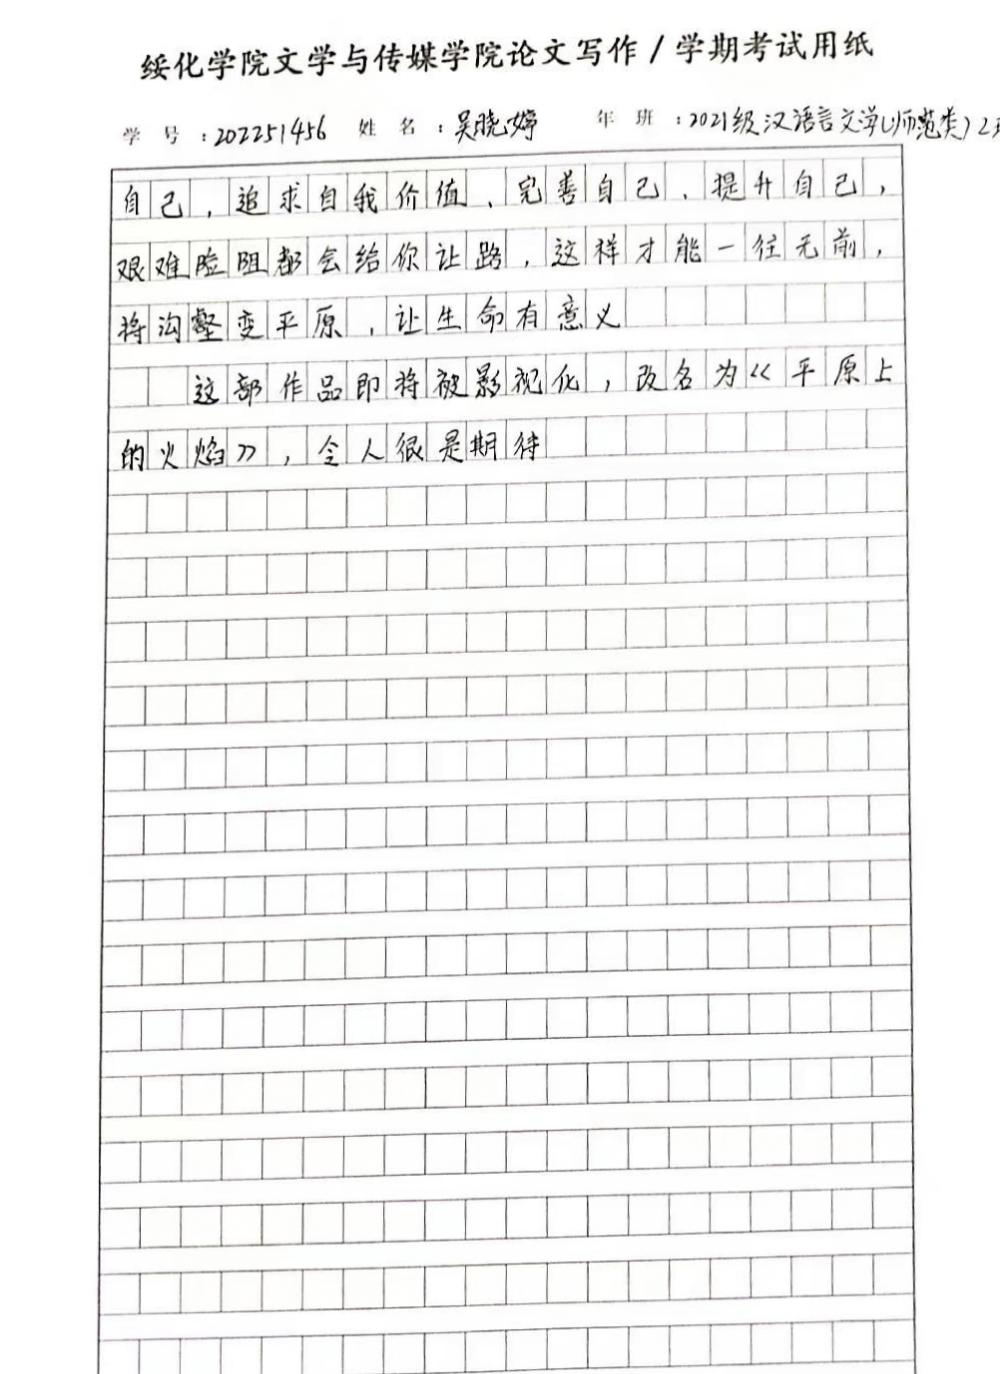 绥化学院文学与传媒学院论文写作/学期考试用纸
学号:202251456 姓名:吴晓婷 年班:2021级汉语言文学(师范类)2
自己,追求自我价值、完善自己、提升自己,
艰难险阻都会给你让路,这样才能一往无前,
将沟壑变平原,让生命有意义
这部作品即将被影视化,改名为《平原上
的火焰》,令人很是期待